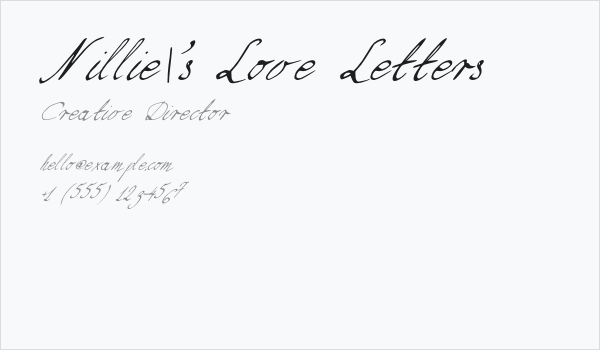 Nillie\'s Love Letters
Creative Director
hello@example.com
+1 (555) 123-4567